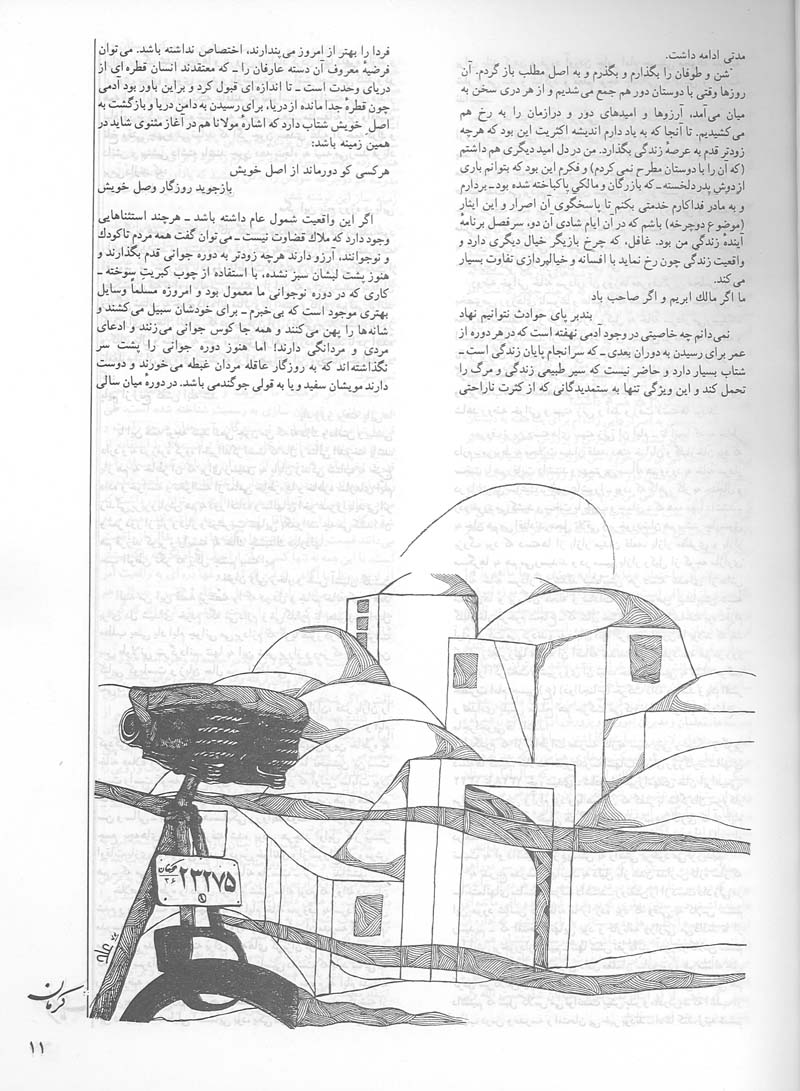 مدتی ادامه داشت.
شن و طوفان را بگذارم و بگذرم و به اصل مطلب باز گردم. آن
روزها وقتی با دوستان دور هم جمع می‌شدیم و از هر دری سخن به
میان می‌آمد، آرزوها و امیدهای دور و درازمان را به رخ هم
می‌کشیدیم. تا آنجا که به یاد دارم اندیشه اکثریت این بود که هرچه
زودتر قدم به عرصهٔ زندگی بگذارد. من در دل امید دیگری هم داشتم
(که آن را با دوستان مطرح نمی کردم) و فکرم این بود که بتوانم باری
از دوش پدر دلخسته ـ که بازرگان و مالکی پاکباخته شده بود ـ بردارم
و به مادر فداکارم خدمتی بکنم تا پاسخگوی آن اصرار و این ایثار
(موضوع دوچرخه) باشم که در آن ایام شادی آن دو، سرفصل برنامهٔ
آیندهٔ زندگی من بود. غافل، که چرخ بازیگر خیال دیگری دارد و
واقعیت زندگی چون رخ نماید با افسانه و خیالپردازی تفاوت بسیار
می‌کند.
ما اگر مالك ابریم و اگر صاحب باد
بندبر پای حوادث نتوانیم نهاد
نمی‌دانم چه خاصیتی در وجود آدمی نهفته است که در هر دوره از
عمر برای رسیدن به دوران بعدی ـ که سرانجام پایان زندگی است ـ
شتاب بسیار دارد و حاضر نیست که سیر طبیعی زندگی و مرگ را
تحمل کند و این ویژگی تنها به ستمدیدگانی که از کثرت ناراحتی
فردا را بهتر از امروز می‌پندارند، اختصاص نداشته باشد. می‌توان
فرضیهٔ معروف آن دسته عارفان را ـ که معتقدند انسان قطره‌ای از
دریای وحدت است ـ تا اندازه‌ای قبول کرد و براین باور بود آدمی
چون قطرهٔ جدا مانده از دریا، برای رسیدن به دامن دریا و بازگشت به
اصل خویش شتاب دارد که اشارهٔ مولانا هم در آغاز مثنوی شاید در
همین زمینه باشد:
هرکسی کو دورماند از اصل خویش
بازجوید روزگار وصل خویش
اگر این واقعیت شمول عام داشته باشد ـ هرچند استثناهایی
وجود دارد که ملاك قضاوت نیست ـ می‌توان گفت همه مردم تاکودك
و نوجوانند، آرزو دارند هرچه زودتر به دوره جوانی قدم بگذارند و
هنوز پشت لبشان سبز نشده، با استفاده از چوب کبریتِ سوخته ـ
کاری که در دوره نوجوانی ما معمول بود و امروزه مسلماً وسایل
بهتری موجود است که بی‌خبرم ـ برای خودشان سبیل می‌کشند و
شانه‌ها را پهن می‌کنند و همه جا کوس جوانی می‌زنند و ادعای
مردی و مردانگی دارند! اما هنوز دوره جوانی را پشت سر
نگذاشته‌اند که به روزگار عاقله مردان غبطه می‌خورند و دوست
دارند مویشان سفید و یا به قولی جوگندمی باشد. در دورهٔ میان سالی
۲۳۲۷۵
۲۶
کرمان
۱۱